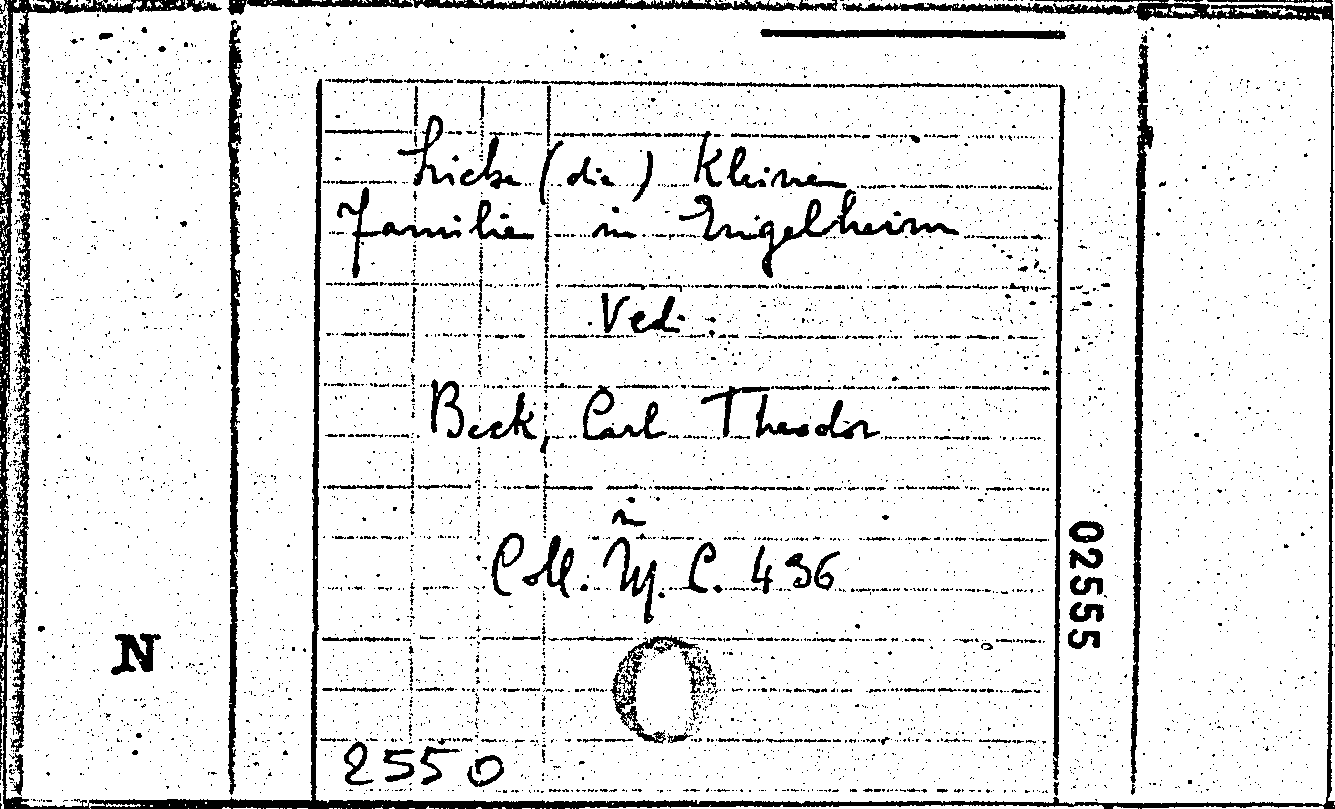 Liebe (die) Kleinen
Familie in Engelheim
Vedi:
Beck, Carl Theodor
in
Coll. M. C. 436
02555
N
2550